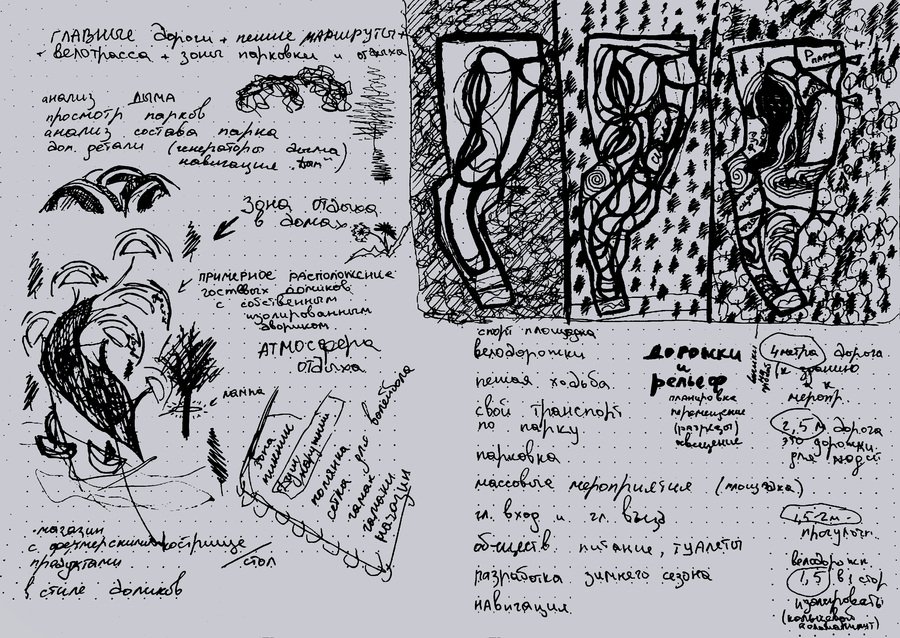 ГЛАВНЫЕ дороги + пешие МАРШРУТЫ +
+ велотрасса + зоны парковки и отдыха
анализ ДЫМА
просмотр парков
анализ состава парка
доп. детали (генераторы дыма)
навигация.
зона отдыха
в домах
примерное расположение
гостевых домиков
с собственным
изолированным
двориком
АТМОСФЕРА
отдыха
лампа
зона
пикника
полянка
сетка для волейбола
гамак
магазин
с фермерскими
продуктами
в стиле домиков
кострище
стол
спорт площадка
велодорожки
пешая ходьба
свой транспорт
по парку
парковка
массовые мероприятия (площадка)
гл. вход и гл. въезд
обществ. питание, туалеты
разработка зимнего сезона
навигация
ДОРОЖКИ
и
рельеф
планировка
перемещение
(разрезы)
освещение
4 метра дорога
к зданию
и к
меропр.
2,5 м дорога
это дорожки
для людей
1,5-2 м
прогулочн.
велодорожк
1,5 в 1 стор
изолировать